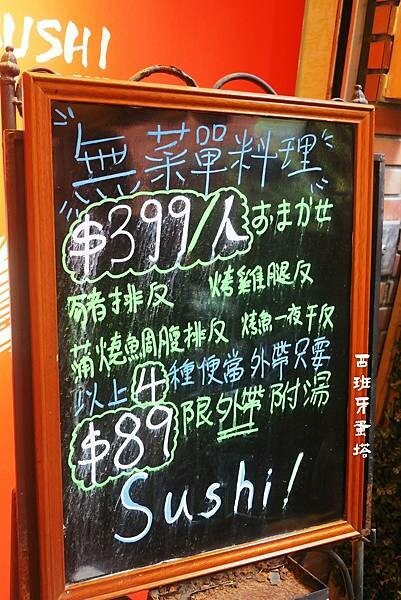 SUSHI
無菜單料理
$399/人 おまかせ
豬排反 烤雞腿反
蒲燒魚周腹排反 烤魚一夜干反
以上4種便當外帶只要
$89 限外帶 附湯
Sushi!
西班牙蛋塔